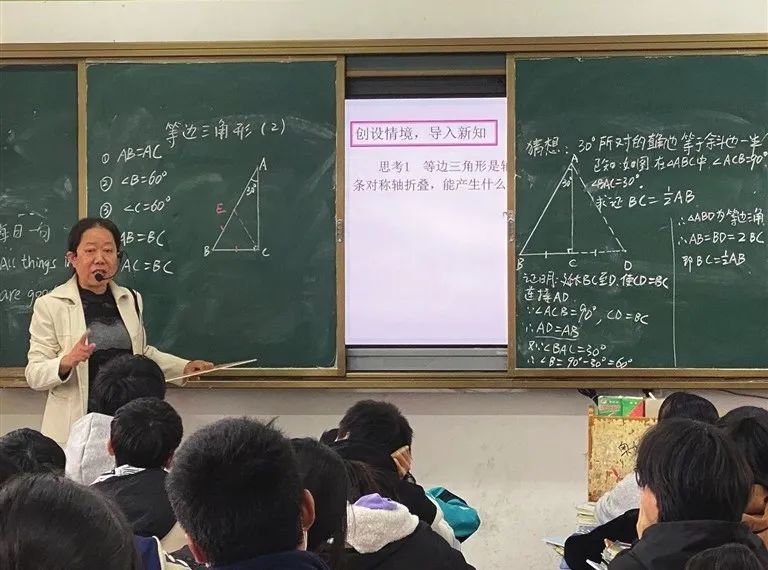 每日一句
All things
are good
等边三角形（2）
① AB=AC
② ∠B=60°
③ ∠C=60°
AB=BC
AC=BC
A
30°
E
B
C
创设情境，导入新知
思考1 等边三角形是轴
条对称轴折叠，能产生什么
猜想：30°所对的直角边等于斜边一半
已知：如图在△ABC中，∠ACB=90°
∠BAC=30°.
求证 BC=½AB
A
30°
B
C
D
证明：延长BC至D，使CD=BC
连接AD
∵∠ACB=90°，CD=BC
∴AD=AB
又∵∠BAC=30°
∴∠B=90°-30°=60°
∴△ABD为等边三角
∴AB=BD=2BC
即BC=½AB